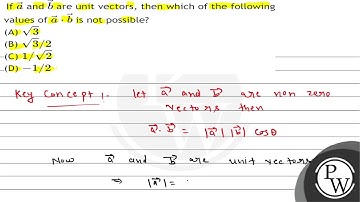 If $\vec{a}$ and $\vec{b}$ are unit vectors, then which of the following
values of $\vec{a} \cdot \vec{b}$ is not possible?
(A) √3
(B) √3/2
(C) 1/√2
(D) −1/2
Key Concept :. let $\vec{a}$ and $\vec{b}$ are non zero
vectors then
$\vec{a} \cdot \vec{b}$ = |$\vec{a}$| |$\vec{b}$| cosθ
Now $\vec{a}$ and $\vec{b}$ are unit vectors
⇒ |$\vec{a}$| =
PW